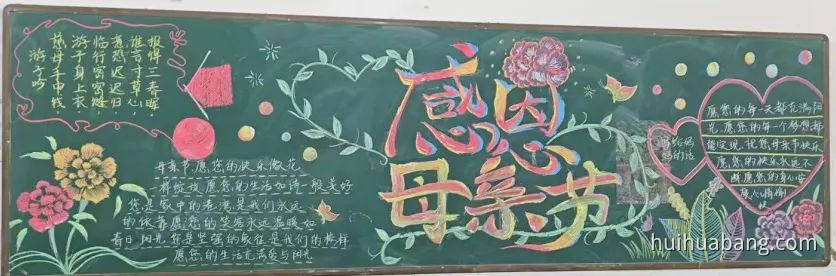 游子吟
慈母手中线，
游子身上衣，
临行密密缝
意恐迟迟归，
谁言寸草心，
报得三春晖
感恩
母亲节
母亲节,愿您的快乐像花
一样绽放,愿您的生活如诗一般美好
您是家中的港湾是我们永远
的依靠愿您的笑容永远温暖如
春日阳光您是坚强的象征是我们的榜样
愿您的生活充满爱与阳光
写给妈
妈的话
愿您的每一天都花满阳
光,愿您的每一个梦想都
能实现,祝您母亲节快乐
愿您的快乐永远不
愿您的身心
huihuabang.com